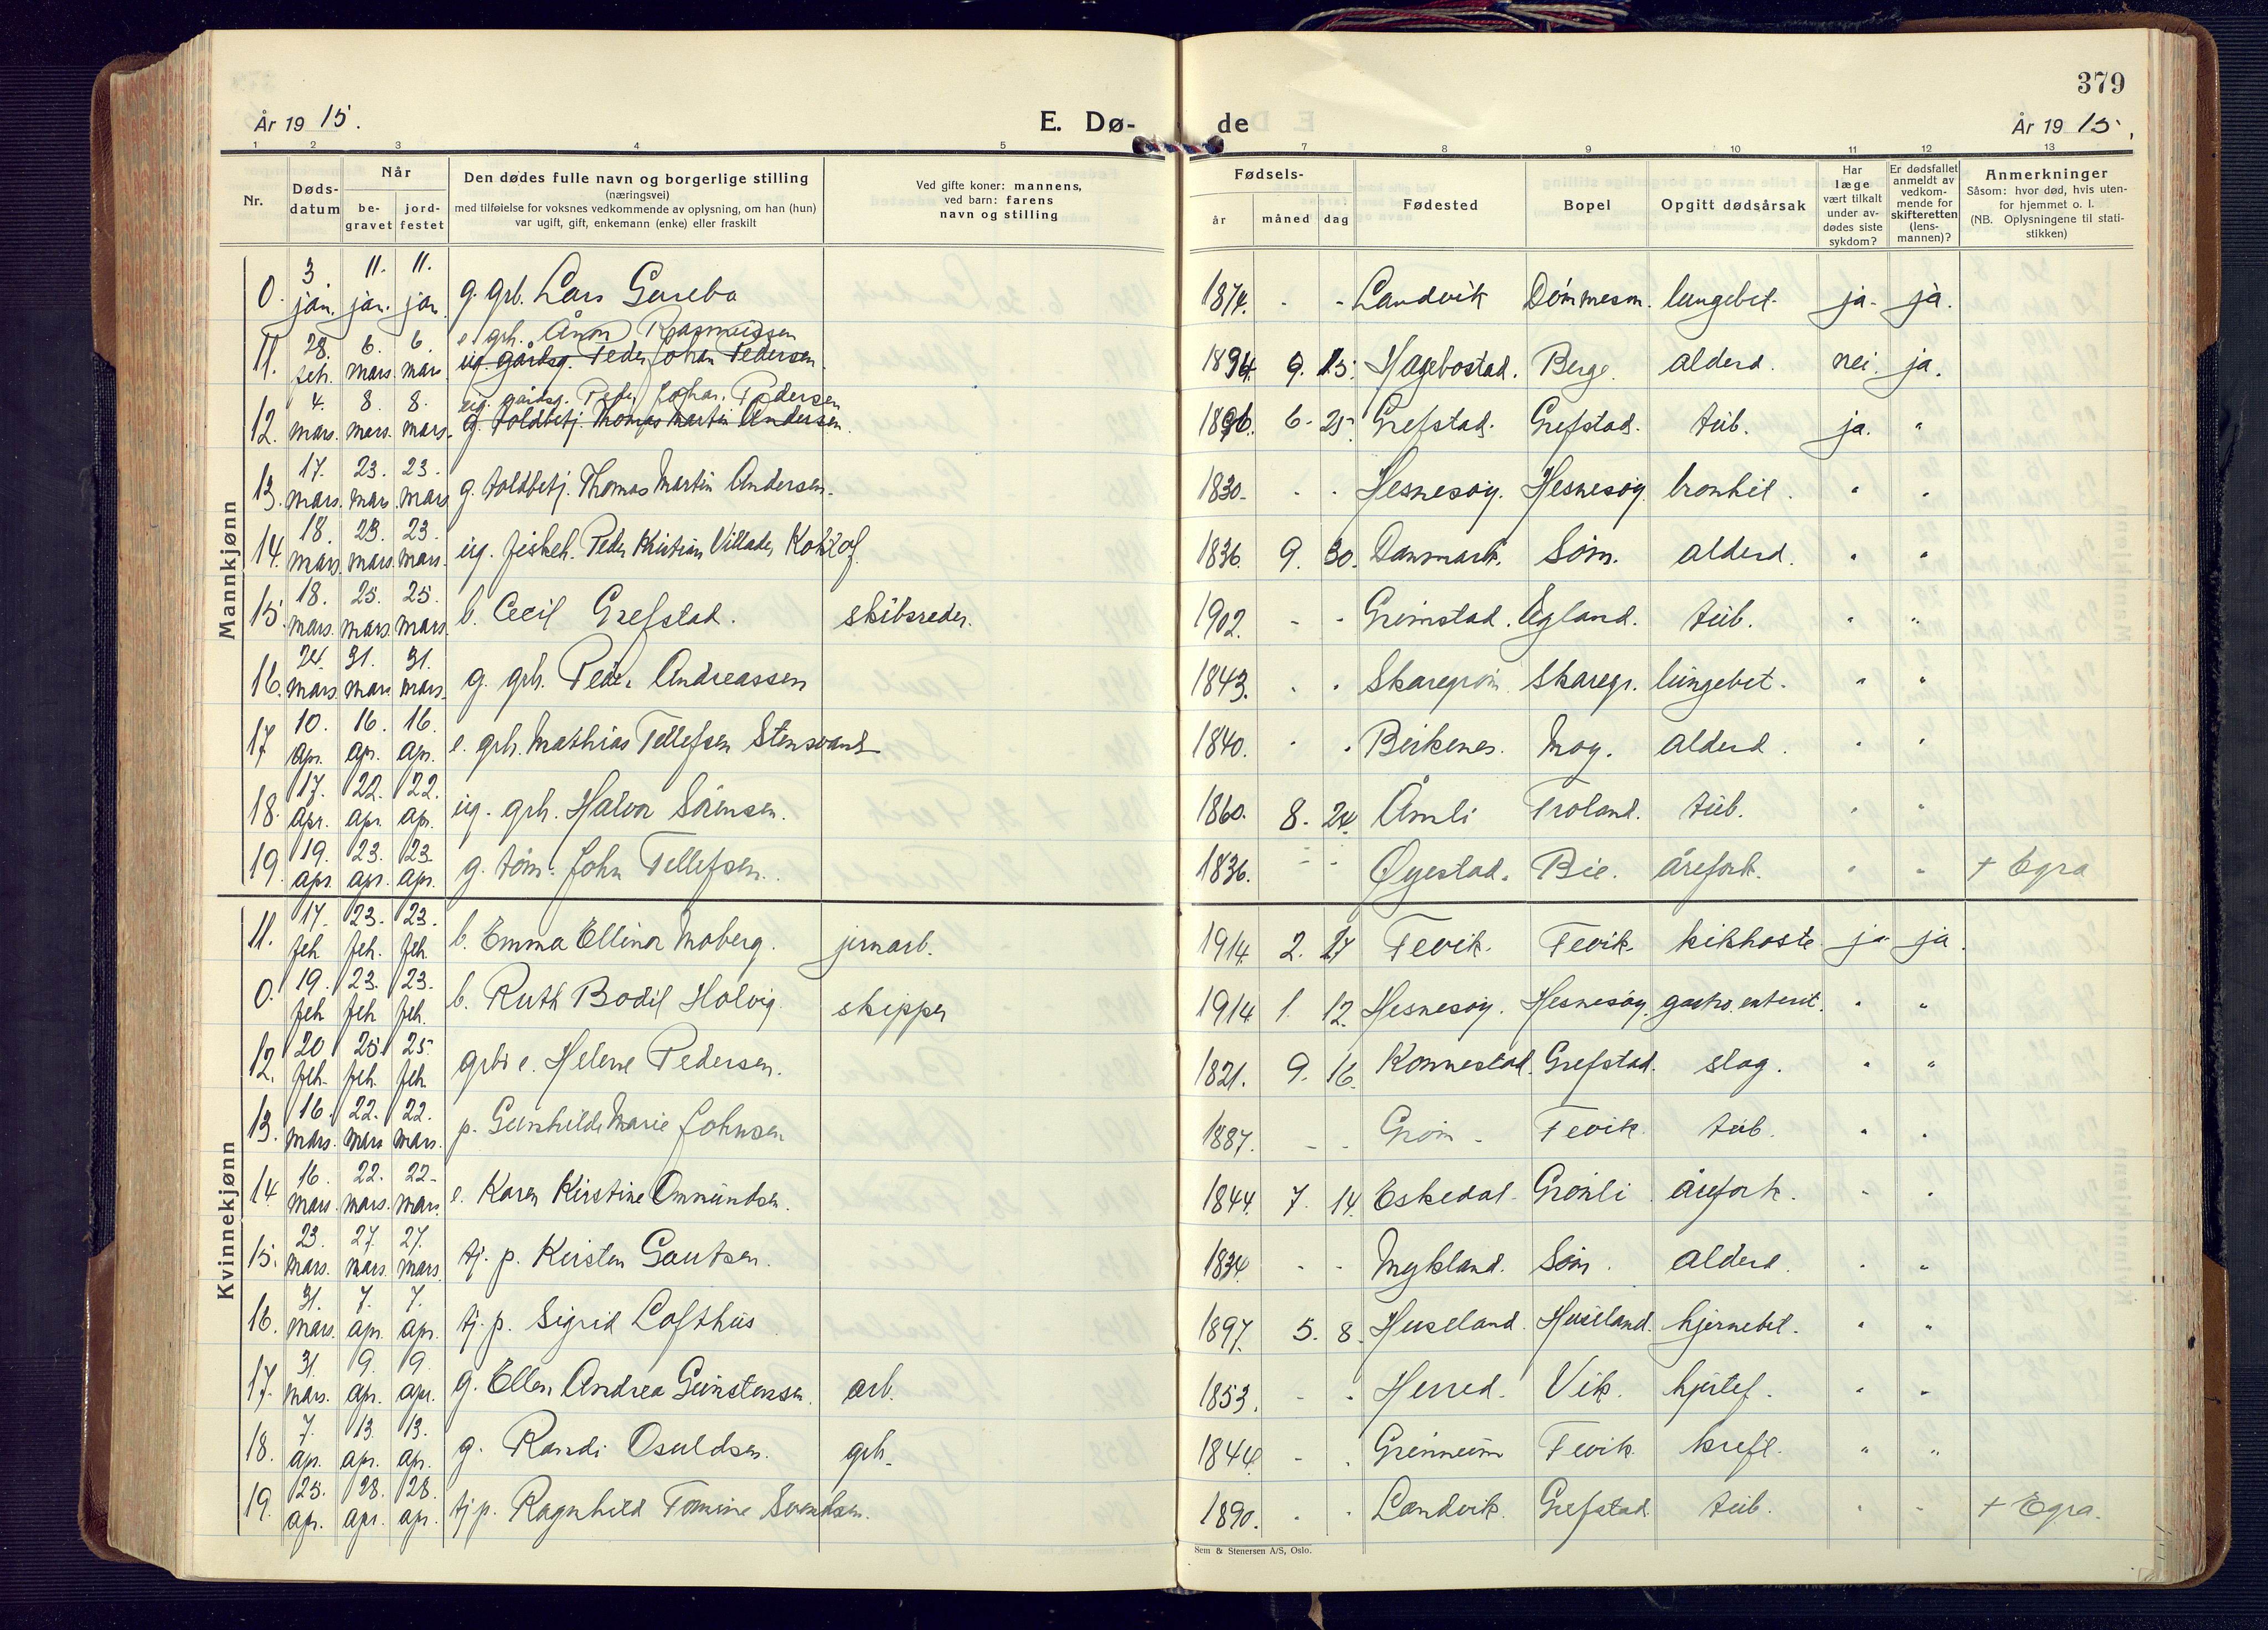 379
År 19 15.
E. Dø-
de
År 19 15.
1 2 3 4 5 7 8 9 10 11 12 13
Nr.
Døds-
datum
Når
be-
gravet
jord-
festet
Den dødes fulle navn og borgerlige stilling
(næringsvei)
med tilføielse for voksnes vedkommende av oplysning, om han (hun)
var ugift, gift, enkemann (enke) eller fraskilt
Ved gifte koner: mannens,
ved barn: farens
navn og stilling
Fødsels-
år måned dag
Fødested
Bopel
Opgitt dødsårsak
Har
læge
vært tilkalt
under av-
dødes siste
sykdom?
Er dødsfallet
anmeldt av
vedkom-
mende for
skifteretten
(lens-
mannen)?
Anmerkninger
Såsom: hvor død, hvis uten-
for hjemmet o. l.
(NB. Oplysningene til stati-
stikken)
Mannkjønn
0. 3. jan. 11. jan. 11. jan. g. grb. Lars 1874. - - Landvik lungebet. ja. ja.
11. 28. feb. 6. mars. 6. mars. e. grb. Ånon Rasmussen
ug. gårdsg. Peder Johan Pedersen 9. 15. Hægebostad. Berge. alderd. nei. ja.
12. 4. mars. 8. mars. 8. mars. ug. gårdsg. Peder Johan Pedersen
g. toldbetj. Thomas Martin Andersen. 1896. 6. 25. Grefstad. Grefstad. tub. ja. "
13. 17. mars. 23. mars. 23. mars g. toldbetj. Thomas Martin Andersen. 1830. - - Hesnesøy. Hesnesøy. bronkit. " "
14. 18. mars. 23. mars. 23. mars. ug. fiskeh. Peder Kristian Villads 1836. 9. 30. Danmark. Søm. alderd. " "
15. 18. mars. 25. mars. 25. mars. b. Cecil Grefstad. skibsreder. 1902. - - Grimstad. Egland. tub. " "
16. 24. mars. 31. mars 31. mars. g. grb. Peder Andreassen 1843. - - Skaregr. lungebet. " "
17 10. apr. 16. apr. 16. apr. e. grb. Mathias Tellefsen Stensvand 1840. - - Birkenes. Moy. alderd. " "
18. 17. apr. 22. apr. 22. apr. ug. grb. Halvor Sørensen. 1860. 8. 24. Åmli Troland. tub. " "
19. 19. apr. 23. apr. 23. apr. g. tøm. John Tellefsen. 1836. - - Øyestad. Bie. årefork. " " + Egra
Kvinnekjønn
11. 17. feb. 23. feb. 23. feb. b. Emma Ellinor Moberg. jernarb. 1914. 2. 27 Fevik. Fevik. kikhoste ja ja.
0. 19. feb. 23. feb 23. feb. b. Ruth Bodil Holvig. skipper 1914 1. 12. Hesnesøy. Hesnesøy. gastro. enterit. " "
12. 20 feb. 25. feb. 25. feb. grb. e. Helene Pedersen. 1821. 9. 16. Konnestad. Grefstad. slag. " "
13. 16. mars. 22. mars 22. mars. p. Gunhilde Marie Johnsen 1887. - - Grøm - Fevik. tub. " "
14 16. mars. 22. mars. 22. mars. e. Karen Kirstine Ommundsen. 1844. 7. 14. Eskedal. Grønli årefork. " "
15. 23. mars. 27. mars. 27. mars. tj. p. Kirsten Gautsen. 1834. - - Mykland. Søm. alderd. " "
16. 31. mars. 7. apr. 7. apr. tj. p. Sigrid Lofthus 1897. 5. 8. Huseland. Huseland. hjernebet. " "
17. 31. mars. 9. apr. 9. apr. g. Ellen Andrea Gunstensen. arb. 1853. - - Herred. Vik. hjertef. " "
18. 7. apr. 13. apr. 13. apr. g. Randi Osuldsen. grb. 1844. - - Fevik kreft. " "
19. 25. apr. 28. apr. 28. apr. tj. p. Ragnhild Tomine Svendsen. 1890. - - Landvik. Grefstad. tub. " " + Egra.
Sem & Stenersen A/S, Oslo.